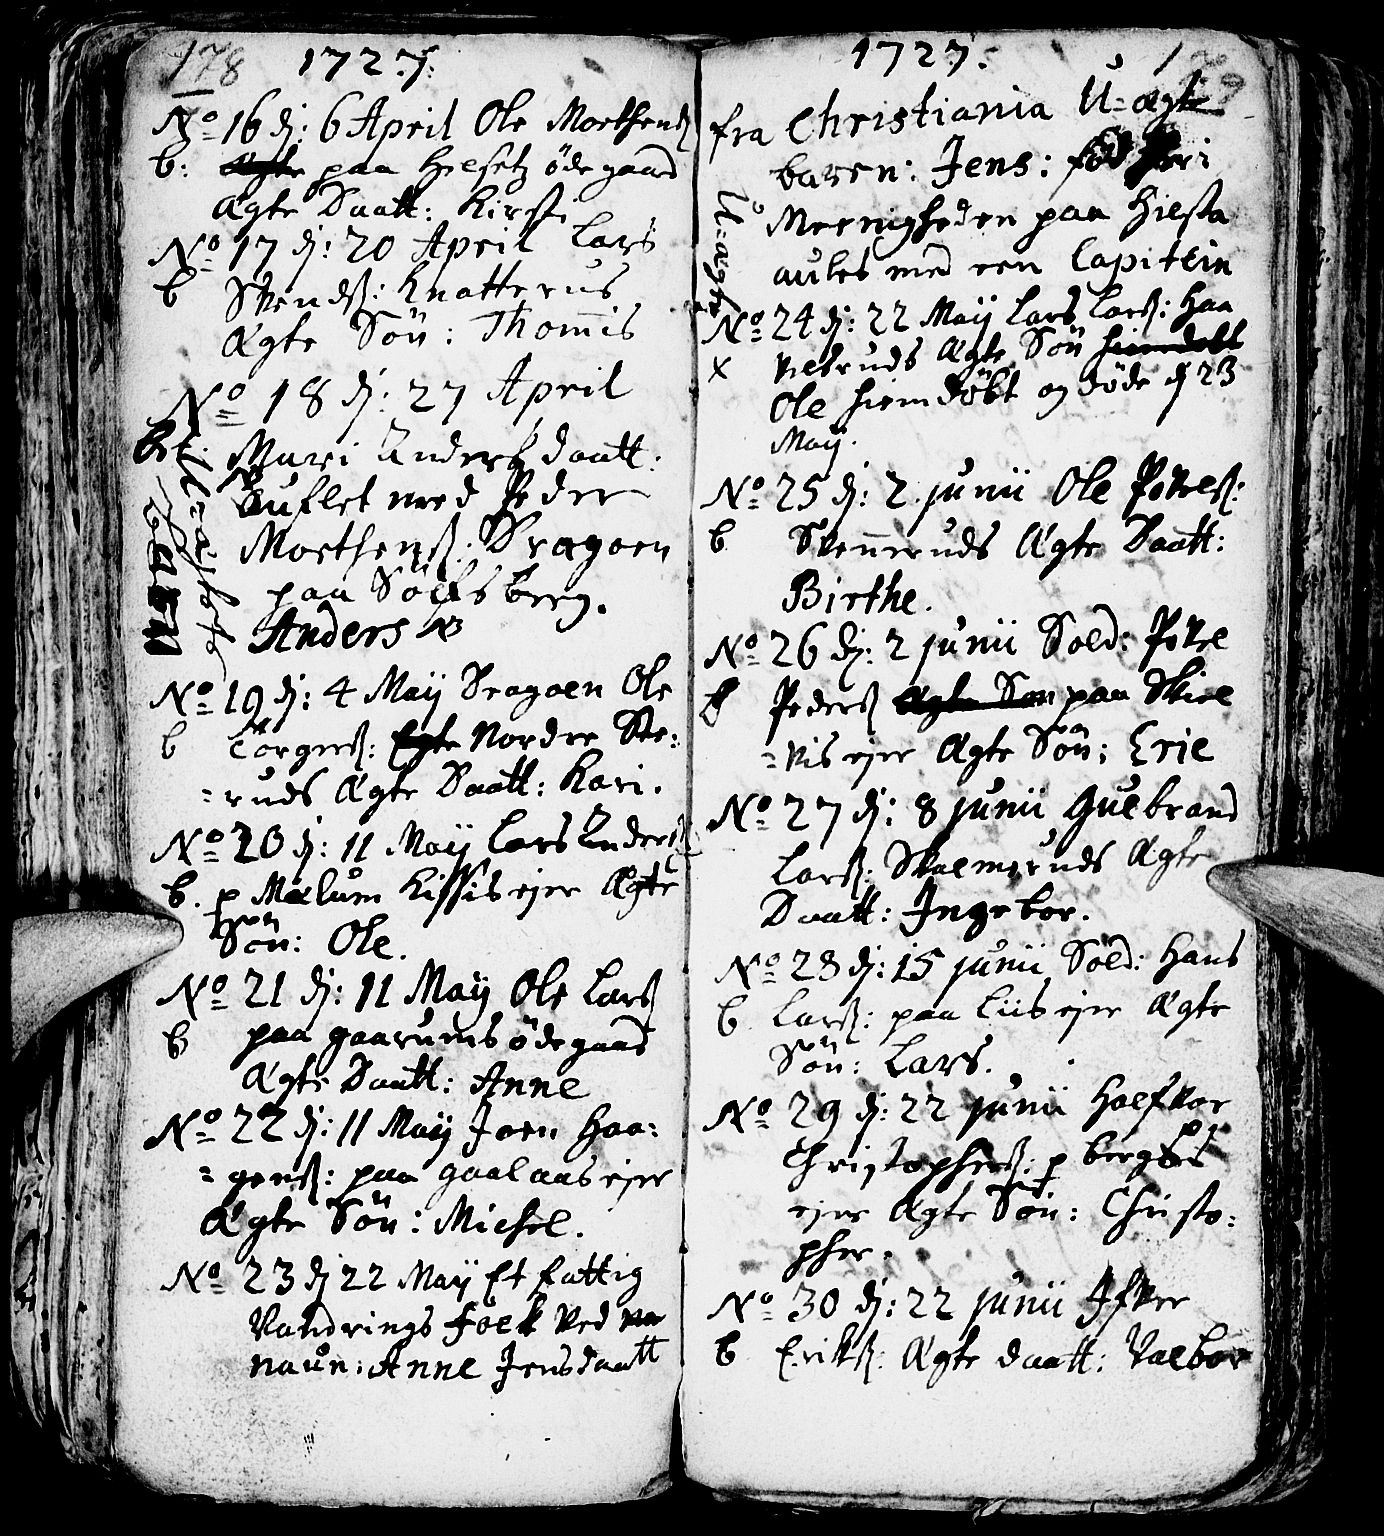 178 1727:
No 16 dj: 6 April Ole Morthens
b: paa Hilset ödegaard
Ægte Daatt: Kirsti
No 17 dj: 20 April Lars
b Knatterus
Ægte Sön: Thomis
No 18 dj: 27 April
Mari Anders daatt:
auflet med Peder
Morthenß: Dragoen
paa Sölfsberg.
Anders
U-ægte
barn
No 19 dj: 4 Maij Dragoen Ole
b Torgerß: Egte Nordre Ste:
=ruds Ægte Daatt: Kari.
No 20 dj: 11 Maij Lars Anderß
b. p Mælum Kissis ejer Ægte
Sön: Ole.
No 21 dj: 11 Maij Ole Larß
b paa gaarums ödegaard
Ægte Daatt: Anne
No 22 dj: 11 Maij Joen Haa:
=genß: paa gaalaas ejer
Ægte Sön: Michel.
No 23 dj 22 Maij Et fattig
Vandrings Folk Ved
naun: Anne Jensdaatt
1727: 179
fra Christiania U-ægte
baren: Jens: föd
U-ægte
Meenigheden paa Hiesta
aules med een Capitein
No 24 dj: 22 Maij Lars Larß: Haa
x Ægte Sön
Ole hiemdöbt og döde dj 23
Maij.
No 25 dj: 2 junii Ole
b Ægte Daatt:
Birthe.
No 26 dj: 2 junii Sold:
b Pederß Ægte Son paa Skiel
=vis ejer Ægte Sön: Eric
No 27 dj: 8 junii Gulbrand
Larß: Skalmeruds Ægte
Daatt: Ingebor.
No 28 dj: 15 junii Sold: Hans
b Larß: paa Liis ejer Ægte
Sön: Lars.
No 29 dj: 22 junii Holfvor
Christopherß: p bergs
ejer Ægte Sön: Christo:
pher.
No 30 dj: 22 junii Ifver
b Erikß: Ægte daatt: Valbor